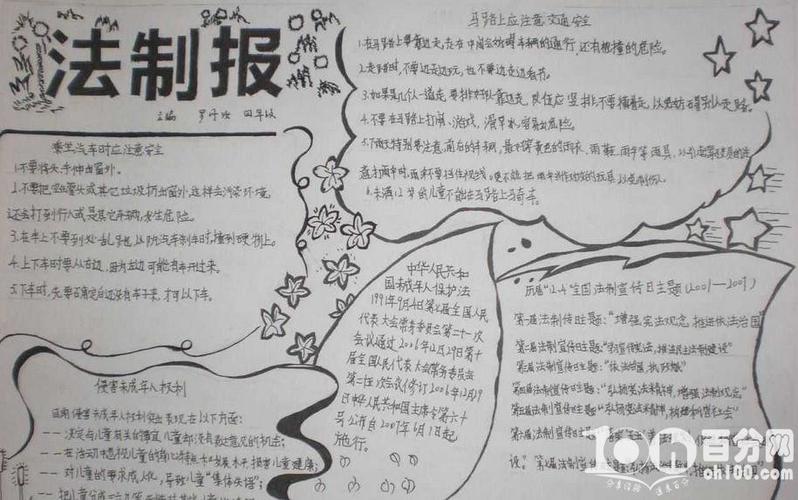 法制报
主编 罗 四年级
乘坐汽车时应注意安全
1.不要将头手伸出窗外。
2.不要把空罐头或其它垃圾扔出窗外,这样会污染环境,
还会打到行人或是其它车辆,发生危险。
3.在车上不要到处乱跑,以防汽车刹车时,撞到硬物上。
4.上下车时要从右边,因为左边可能有车开过来。
5.下车时,先要看清右边没有车子来,才可以下车。
侵害未成年人权利
侵害未成年人权利突出表现在以下方面:
——决定与儿童有关的事宜,儿童却没有表达意见的机会;
——在活动中忽视儿童的 特点和发展水平,损害儿童健康;
——对儿童的要求成人化,导致儿童“集体失语”;
马路上应注意交通安全
1.在马路上要靠边走,走在中间会妨碍车辆的通行,还有被撞的危险。
2.走路时,不要边走边玩,也不要边走边看书。
3.如果是几个人一道走,要排好队靠边走,队伍应竖排,不要横着走,以免妨碍别人走路。
4.不要在马路上打闹、游戏、滑旱冰,容易出危险。
5.下雨天特别要注意,面的车辆,最好穿黄色的雨衣、雨鞋、雨伞等雨具,以引起驾驶员的注
意,打雨伞时,雨伞不要挡住视线,更不能把雨伞当作玩的玩具,以免刺伤人。
6.未满12岁的儿童不能在马路上骑车。
中华人民共和
国未成年人保护法
1991年9月4日第七届全国人民
代表大会常务委员会第二十一次
会议通过 2006年12月29日第十
届全国人民代表大会常务委员会
第二十五次会议修订 2006年12月29
日中华人民共和国主席令第六十
号公布 自2007年6月1日起
施行。
历届“12.4”全国法制宣传日主题(2001—2007)
第一届法制宣传日主题:“增强宪法观念,推进依法治国”
第二届法制宣传日主题:“学习宣传宪法,推进民主法制建设”
第三届法制宣传日主题:“依法治国,执政为民”
第四届法制宣传日主题:“弘扬宪法精神,增强法制观念”
第五届法制宣传日主题:“弘扬宪法精神,构建和谐社会”
第六届法制宣传日主题:
设”。第七届法制宣传日主题:
100百分网
分享资源 速来百分
oh100.com